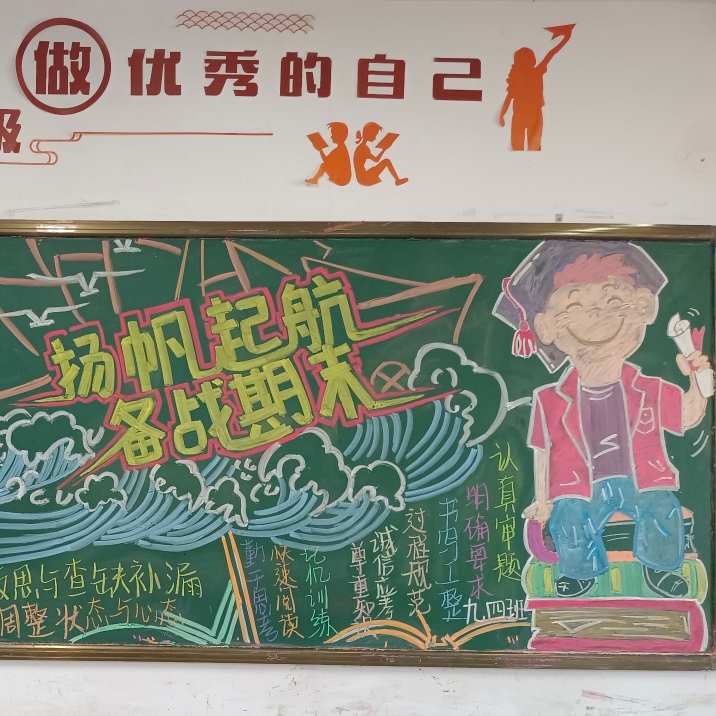 做优秀的自己
级
扬帆起航
备战期末
认真审题
明确要求
书写工整
过程规范
诚信应考
尊重
训练
快速阅读
勤于思考
思与查缺补漏
调整状态与心态
九.四班